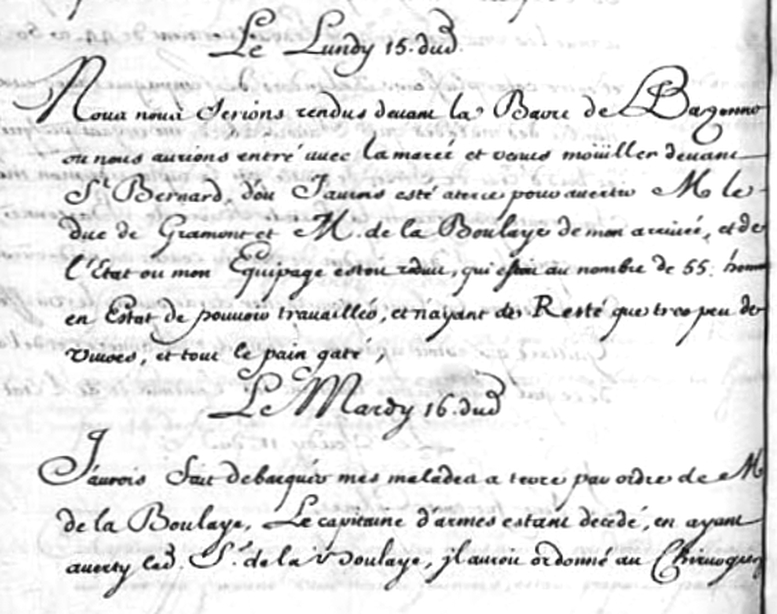 Le Lundy 15. dud.
Nous nous serions rendus devant la Barre de Bayonne
ou nous aurions entré avec la mareé et venus moüiller devant
St. Bernard, d'ou J'aurois esté aterre pour avertir M le
duc de Gramont et M. de la Boulaye de mon arriuée, et de
l'Etat ou mon Equipage estoit reduit, qui estoit au nombre de 55. hommes
en Estat de pouvoir travailler, et n'ayant de Resté que tres peu de
vivres, et tout le pain gaté,
Le Mardy 16. dud
J'aurois fait debarquer mes malades a terre par ordre de M
de la Boulaye, Le capitaine d'armes estant decedé, en ayant
averty led. Sr. de la Boulaye, jl auroit ordonné au Chirurgien